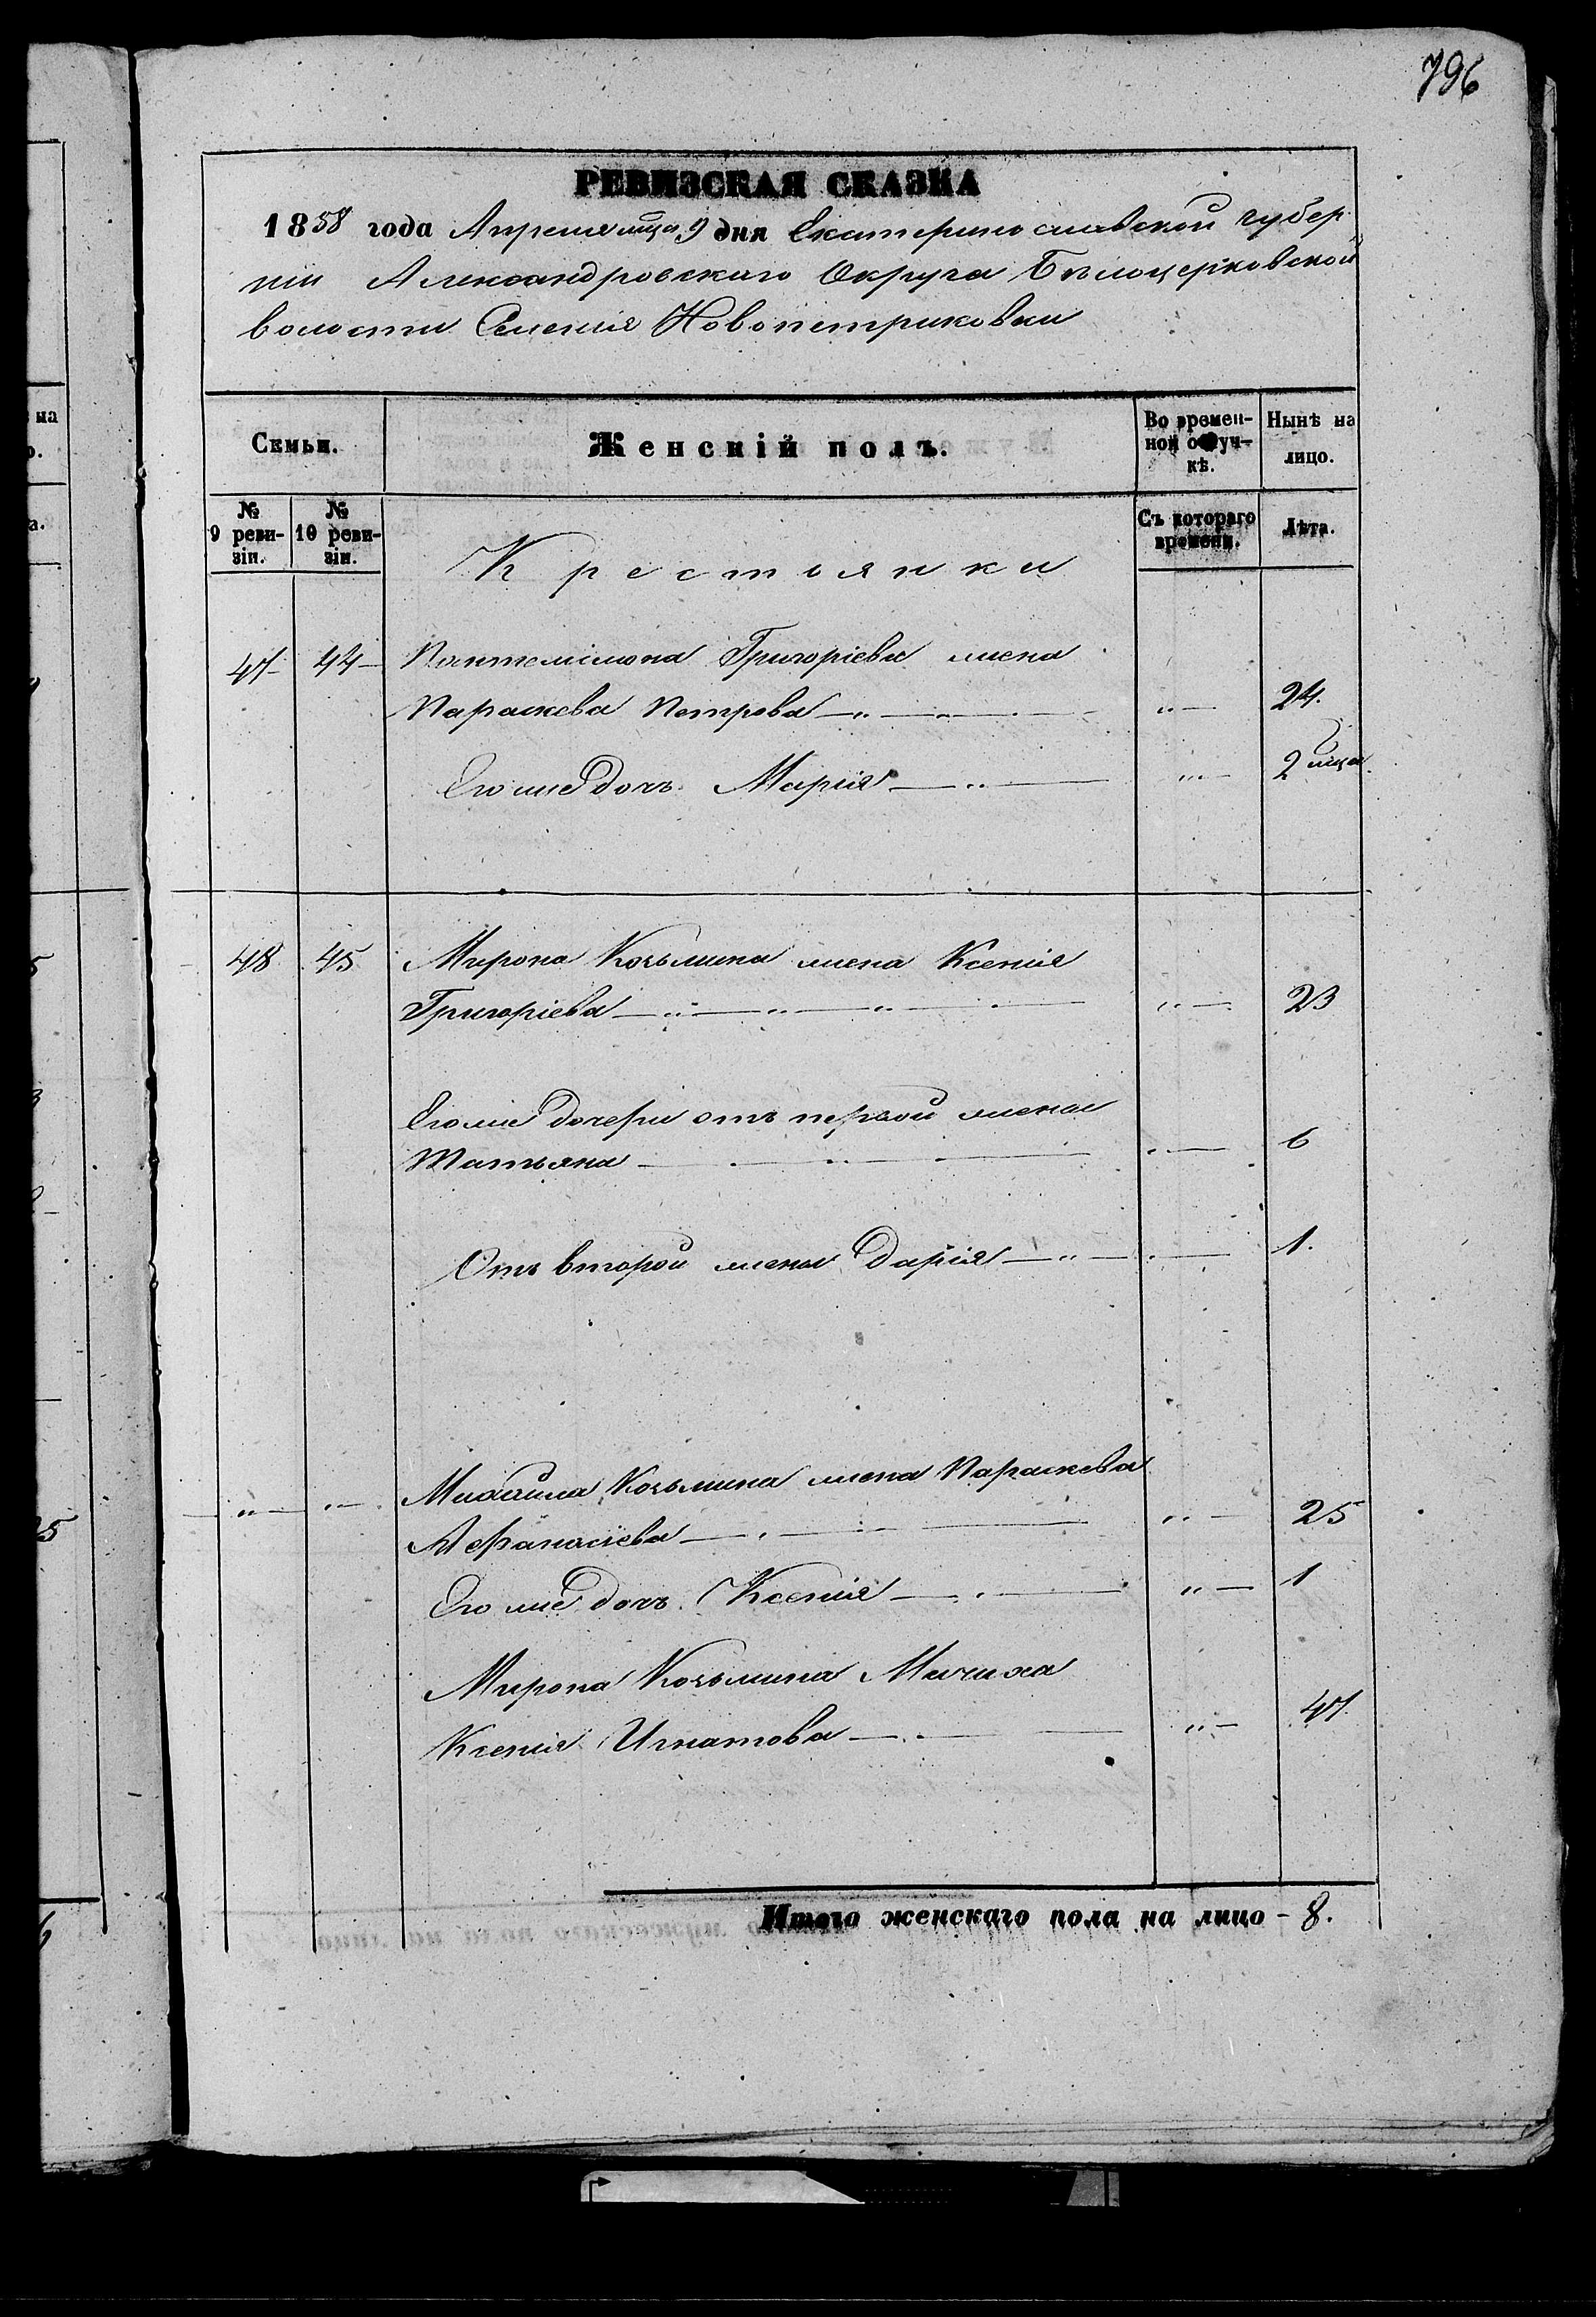 796
РЕВИЗСКАЯ СКАЗКА
1858 года Апреля мца 9 дня Екатеринославской губер
ніи Александровскаго Округа Бѣлоцерковской
волости Селенія Новопетриковки
Семьи. Женскій полъ. Во времен-
ной отлуч-
кѣ. Нынѣ на
лицо.
№
9 реви-
зіи. №
10 реви-
зіи. Съ котораго
времени. Лѣта.
Крестьянки
47 44 Пантелимона Григоріева жена
Параскева Петрова — „ — „ — 24.
Его же дочь Марія — „ — „ — 2 мца
48 45 Мирона Козьмина жена Ксенія
Григоріева — „ — „ — „ — „ — 23
Его же дочери отъ первой жены
Татьяна — „ — „ — 6
Отъ второй жены Дарія — „ — 1.
„ — „ — Михаила Козьмина жена Параскева
Афанасіева — „ — „ — 25
Его же дочь Ксенія — „ — „ — 1
Мирона Козьмина Мачиха
Ксенія Игнатова — „ — „ — 47
Итого женскаго пола на лицо - 8.
на
о.
а.
5
25
6